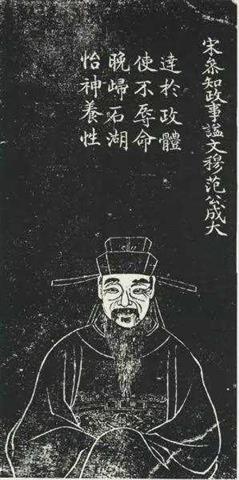 宋參知政事謚文穆范公成大
達於政體
使不辱命
晚歸石湖
怡神養性